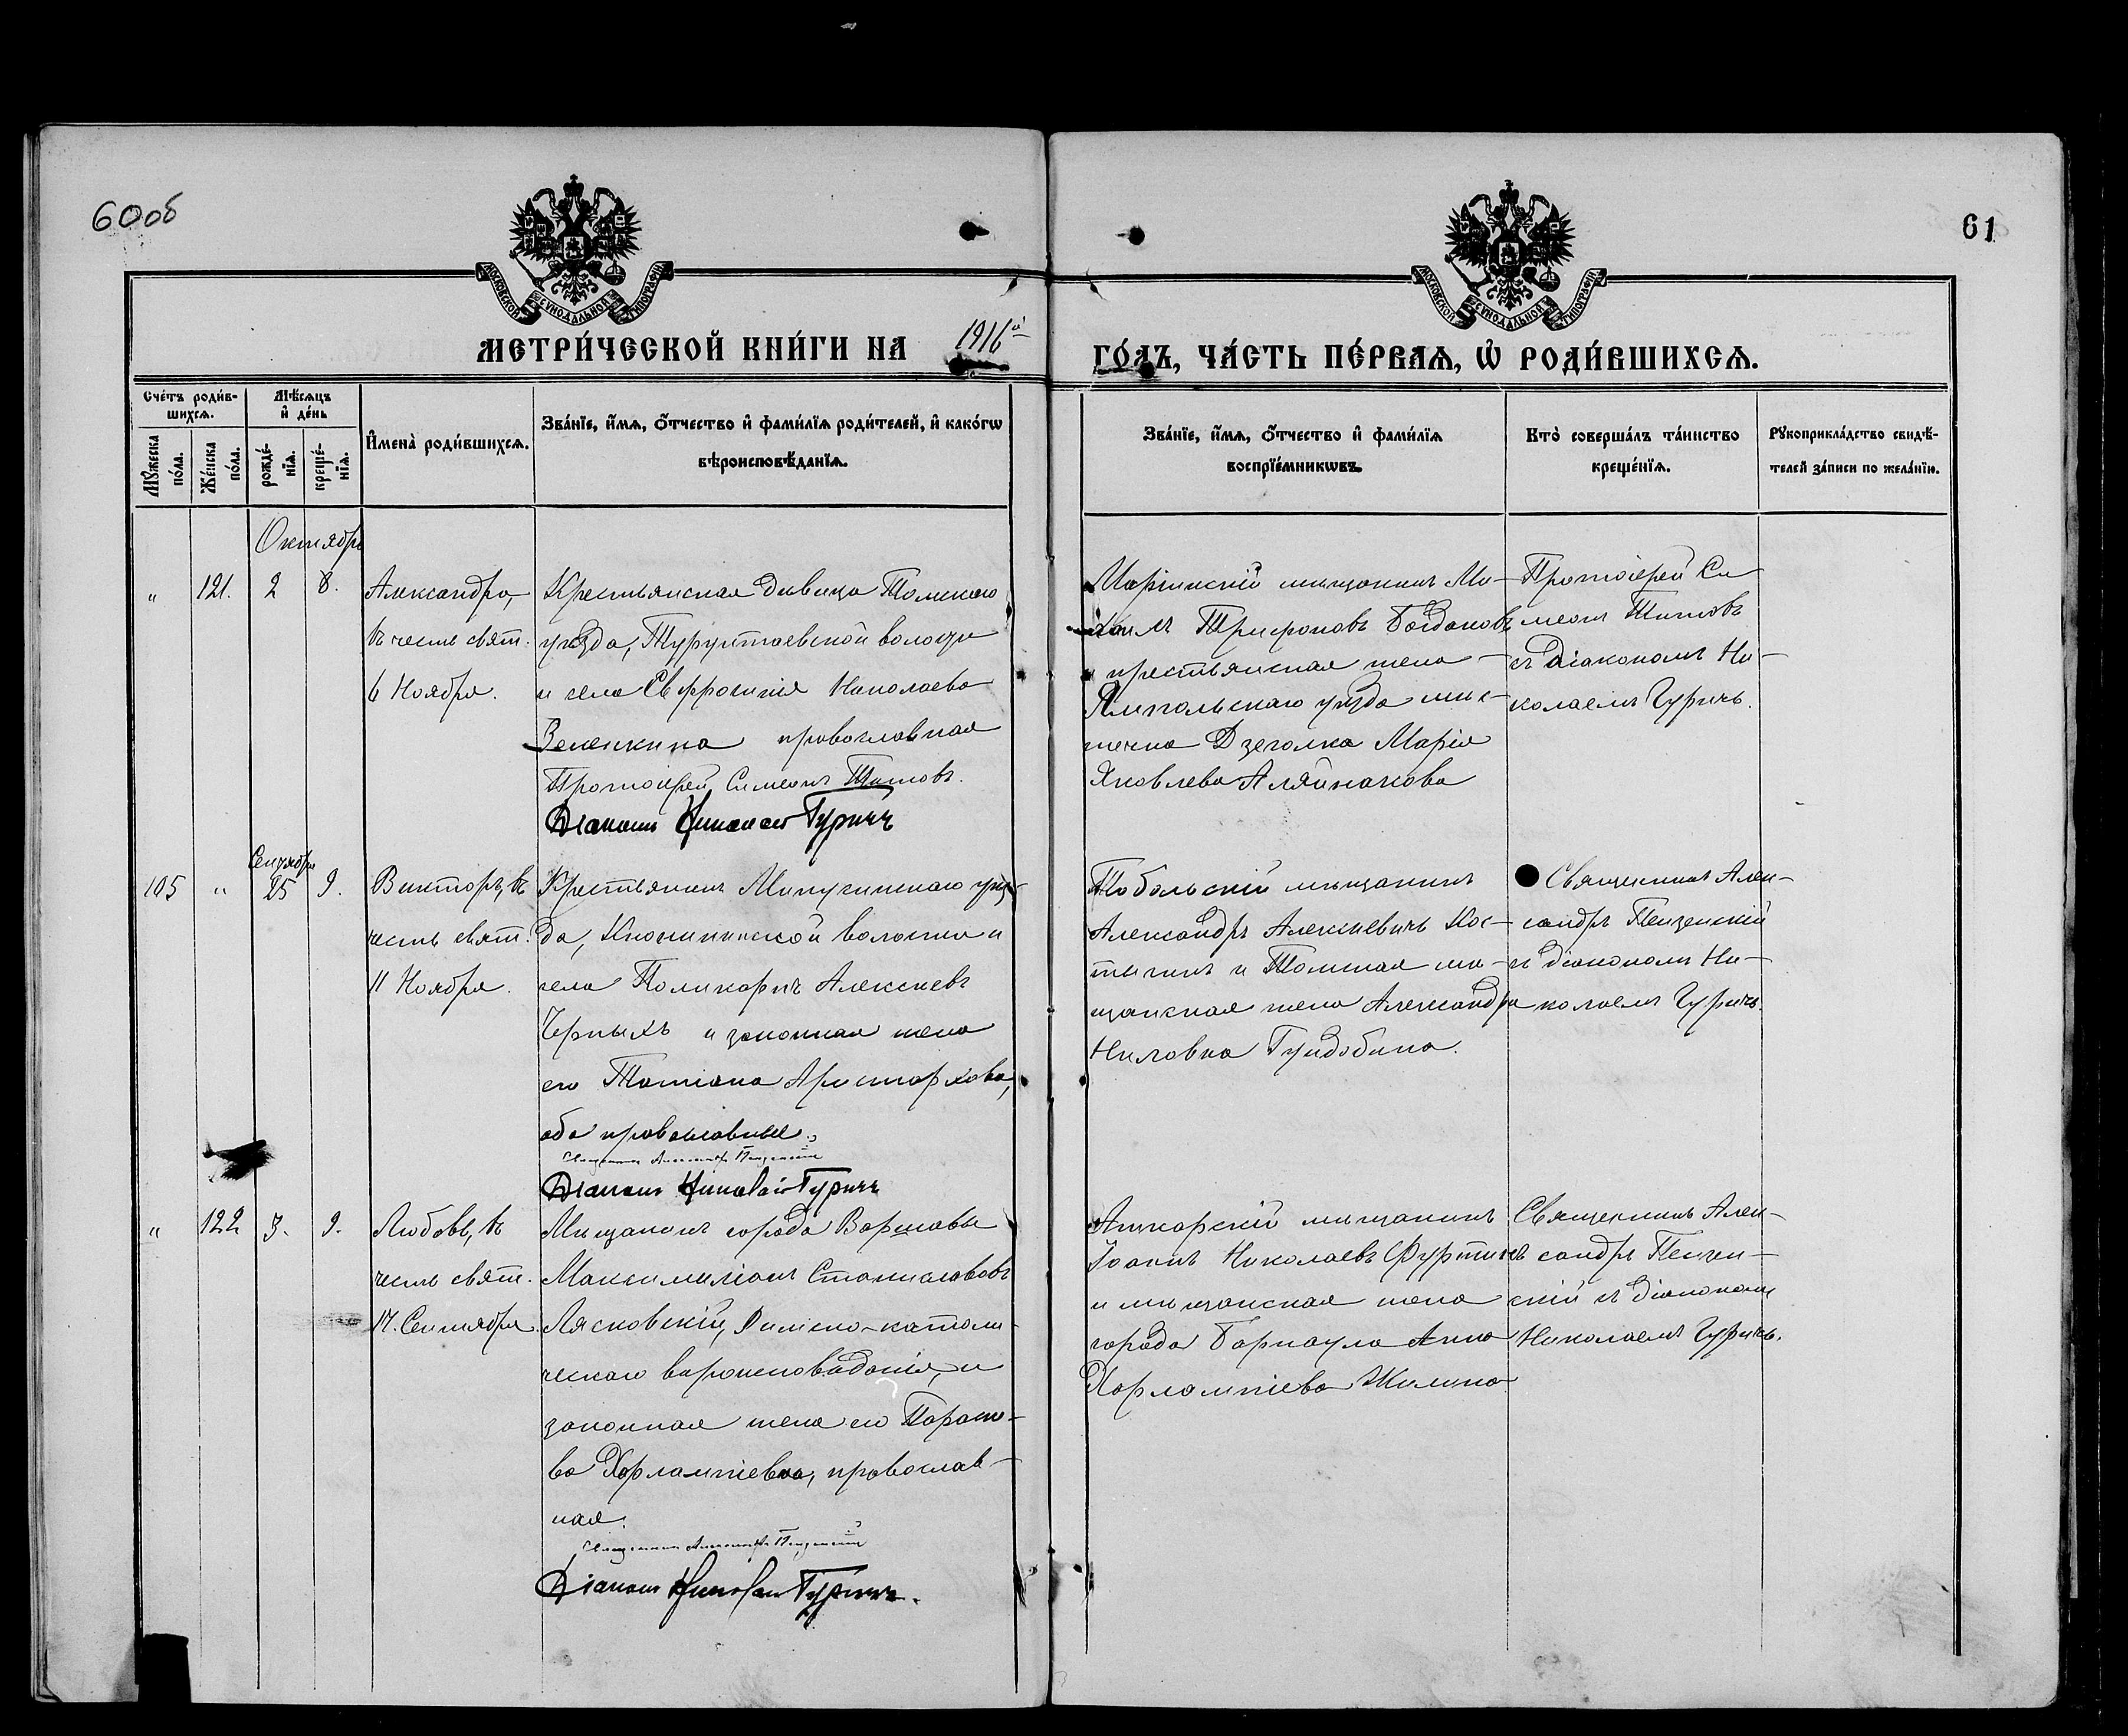 60об
61
МОСКОВСКОЙ СѴНОДАЛЬНОЙ ТИПОГРАФІИ
МОСКОВСКОЙ СѴНОДАЛЬНОЙ ТИПОГРАФІИ
МЕТРИ́ЧЕСКОЙ КНИ́ГИ НА 1916й
ГО́ДЪ, ЧА́СТЬ ПЕ́РВАѦ, Ѡ РОДИ́ВШИХСѦ.
Сче́тъ роди́в-
шихсѧ.
Мѣ́сѧцъ
и҆ де́нь
Мꙋ́жеска
по́ла.
Же́нска
по́ла.
рожде́-
нїѧ.
креще́-
нїѧ.
И҆мена̀ роди́вшихсѧ.
Зва́нїе, и҆́мѧ, ѻ҆́тчество и҆ фами́лїѧ роди́телей, и҆ како́гѡ
вѣроисповѣ́данїѧ.
Зва́нїе, и҆́мѧ, ѻ҆́тчество и҆ фами́лїѧ
воспрїе́мникѡвъ.
Кто̀ соверша́лъ та́инство
креще́нїѧ.
Рꙋкоприкла́дство свидѣ́-
телей за́писи по жела́нїю.
Октября
" 121. 2 8.
Александра,
въ честь свят.
6 Ноября.
Крестьянская дѣвица Томскаго
уѣзда, Турунтаевской волости
и села Евфросинія Николаева
Зеленкина православная
Протоіерей Симеонъ Титовъ.
Діаконъ Николай Гуричъ
Маріинскій мѣщанинъ Ми-
хаилъ Трифоновъ Богдановъ
и крестьянская жена
Ямпольскаго уѣзда мѣс-
течка Дзеголка Марія
Яковлева
Протоіерей Си
меонъ Титовъ
съ діакономъ Ни-
колаемъ Гуричъ.
Сентября
105 " 25 9.
Викторъ, въ
честь свят.
11 Ноября.
Крестьянинъ Минусинскаго уѣз-
да, волости и
села Поликарпъ Алексѣевъ
Черныхъ и законная жена
его Татіана Аристархова,
оба православные.
Священникъ Александръ Пензенскій
Діаконъ Николай Гуричъ
Тобольскій мѣщанинъ
Александръ Алексѣевичъ Кос-
тыгинъ и Томская мѣ-
щанская жена Александра
Ниловна Гундобина.
Священникъ Алек-
сандръ Пензенскій
съ діакономъ Ни-
колаемъ Гуричъ.
" 122 3. 9.
Любовь, въ
честь свят.
17. Сентября.
Мѣщанинъ города Варшавы
Максимиліанъ Станиславовъ
Лясковскій, Римско-католи-
ческаго вѣроисповѣданія, и
законная жена его Параске-
ва Харлампіевна, православ-
ная.
Священникъ Александръ Пензенскій
Діаконъ Николай Гуричъ.
мѣщанинъ
Іоаннъ Николаевъ Фуртинъ
и мѣщанская жена
города Барнаула Анна
Харлампіева Жилина
Священникъ Алек-
сандръ Пензен-
скій съ діакономъ
Николаемъ Гуричъ.